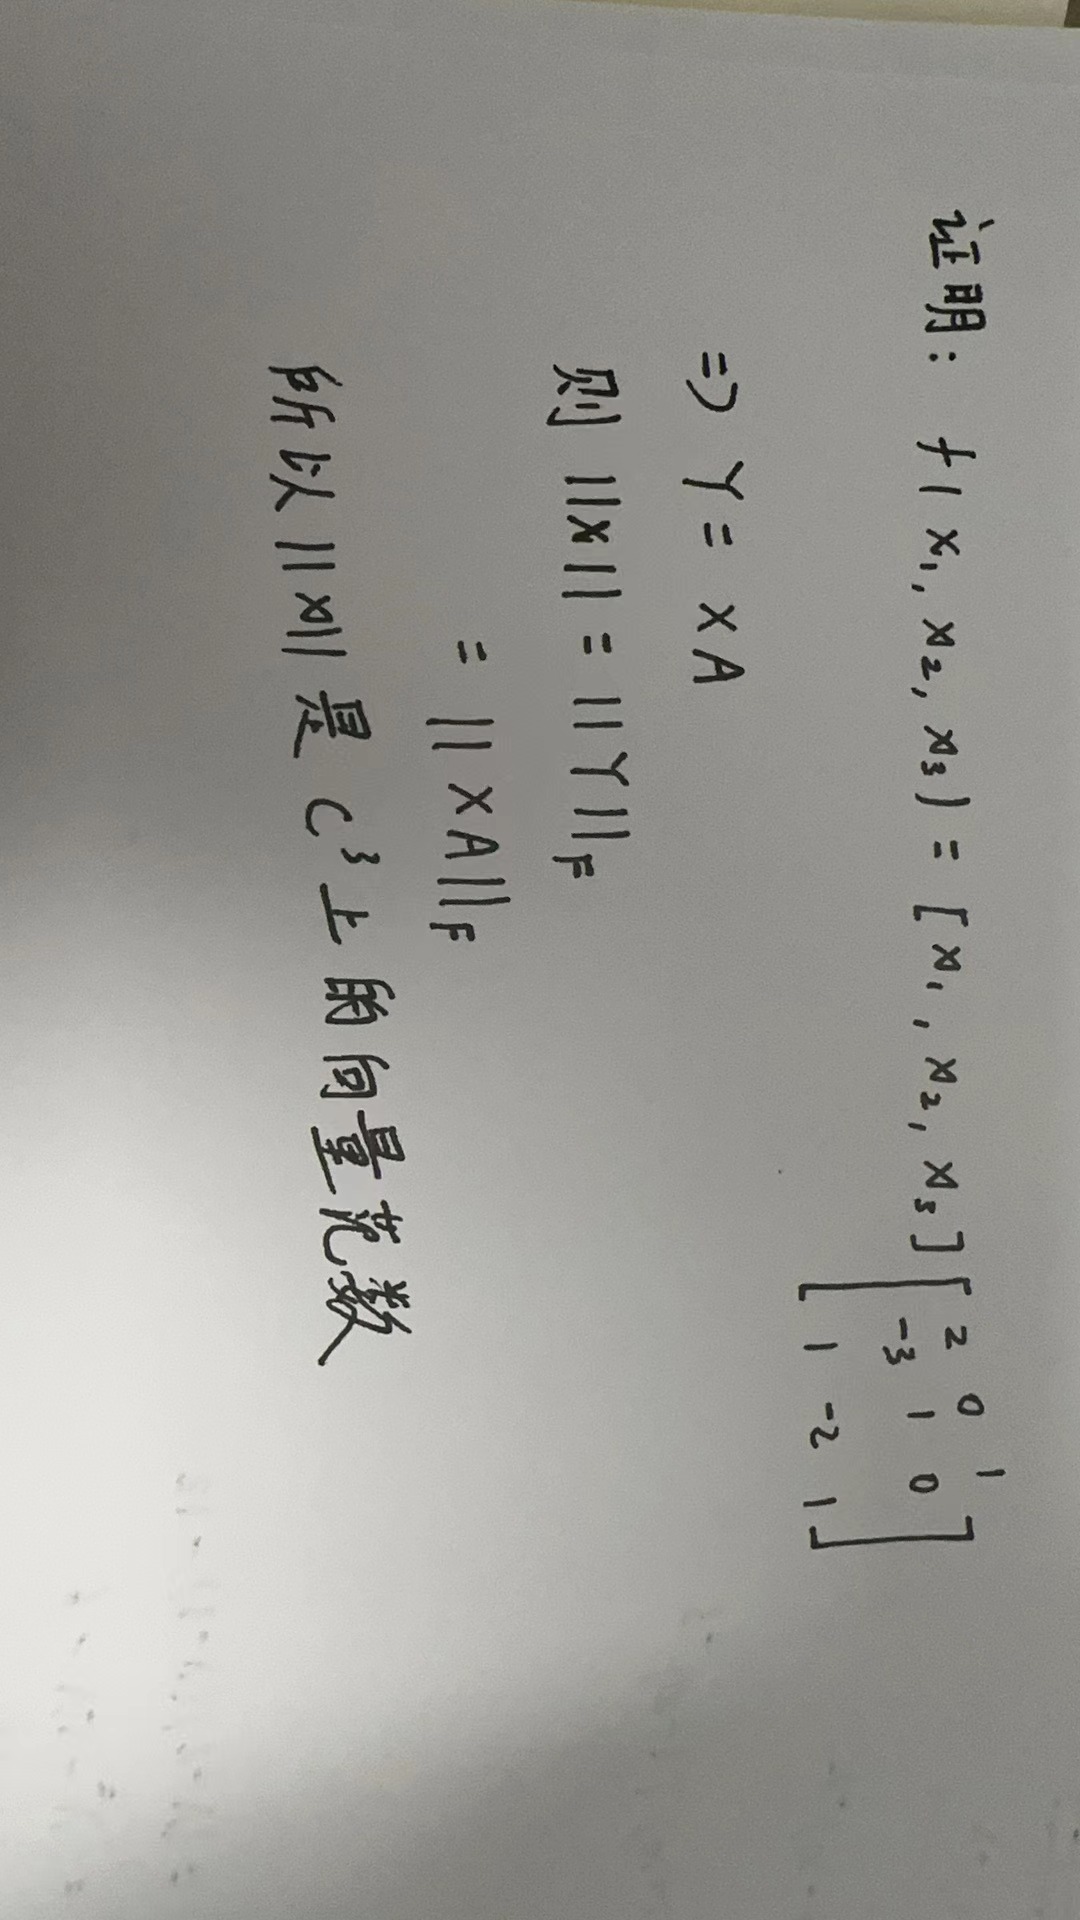 证明: f(x₁, x₂, x₃) = [x₁, x₂, x₃] [2 0 1
-3 1 0
1 -2 1]
=> Y = XA
则 ||X|| = ||Y||_F
= ||XA||_F
所以 ||X|| 是 C³ 上的向量范数